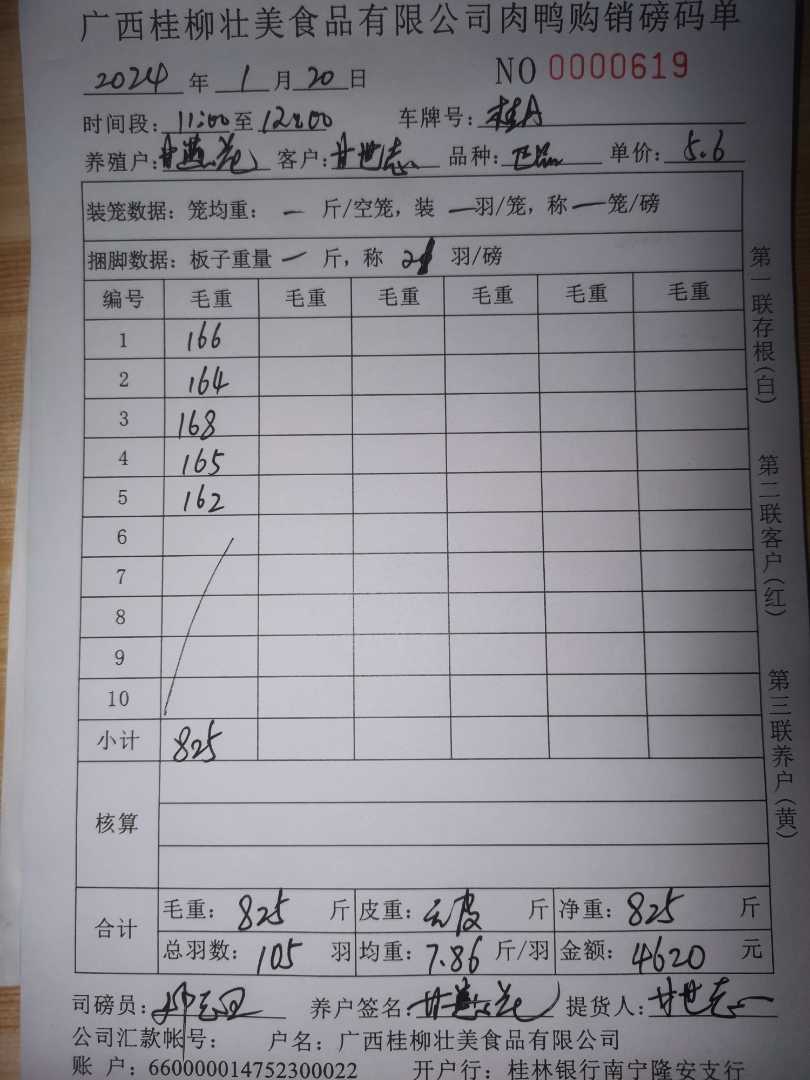 广西桂柳壮美食品有限公司肉鸭购销磅码单
2024 年 1 月 20 日 NO 0000619
时间段: 11:00 至 12:00 车牌号: 桂A
养殖户: 甘燕花 客户: 甘世志 品种: 正品 单价: 5.6
装笼数据: 笼均重: — 斤/空笼, 装 — 羽/笼, 称 — 笼/磅
捆脚数据: 板子重量 — 斤, 称 21 羽/磅
编号 毛重 毛重 毛重 毛重 毛重 毛重
1 166
2 164
3 168
4 165
5 162
6
7
8
9
10
小计 825
核算
合计
毛重: 825 斤 皮重: 去皮 斤 净重: 825 斤
总羽数: 105 羽 均重: 7.86 斤/羽 金额: 4620 元
司磅员: 养户签名: 甘燕花 提货人: 甘世志
公司汇款帐号: 户名: 广西桂柳壮美食品有限公司
账 户: 660000014752300022 开户行: 桂林银行南宁隆安支行
第一联存根(白)
第二联客户(红)
第三联养户(黄)